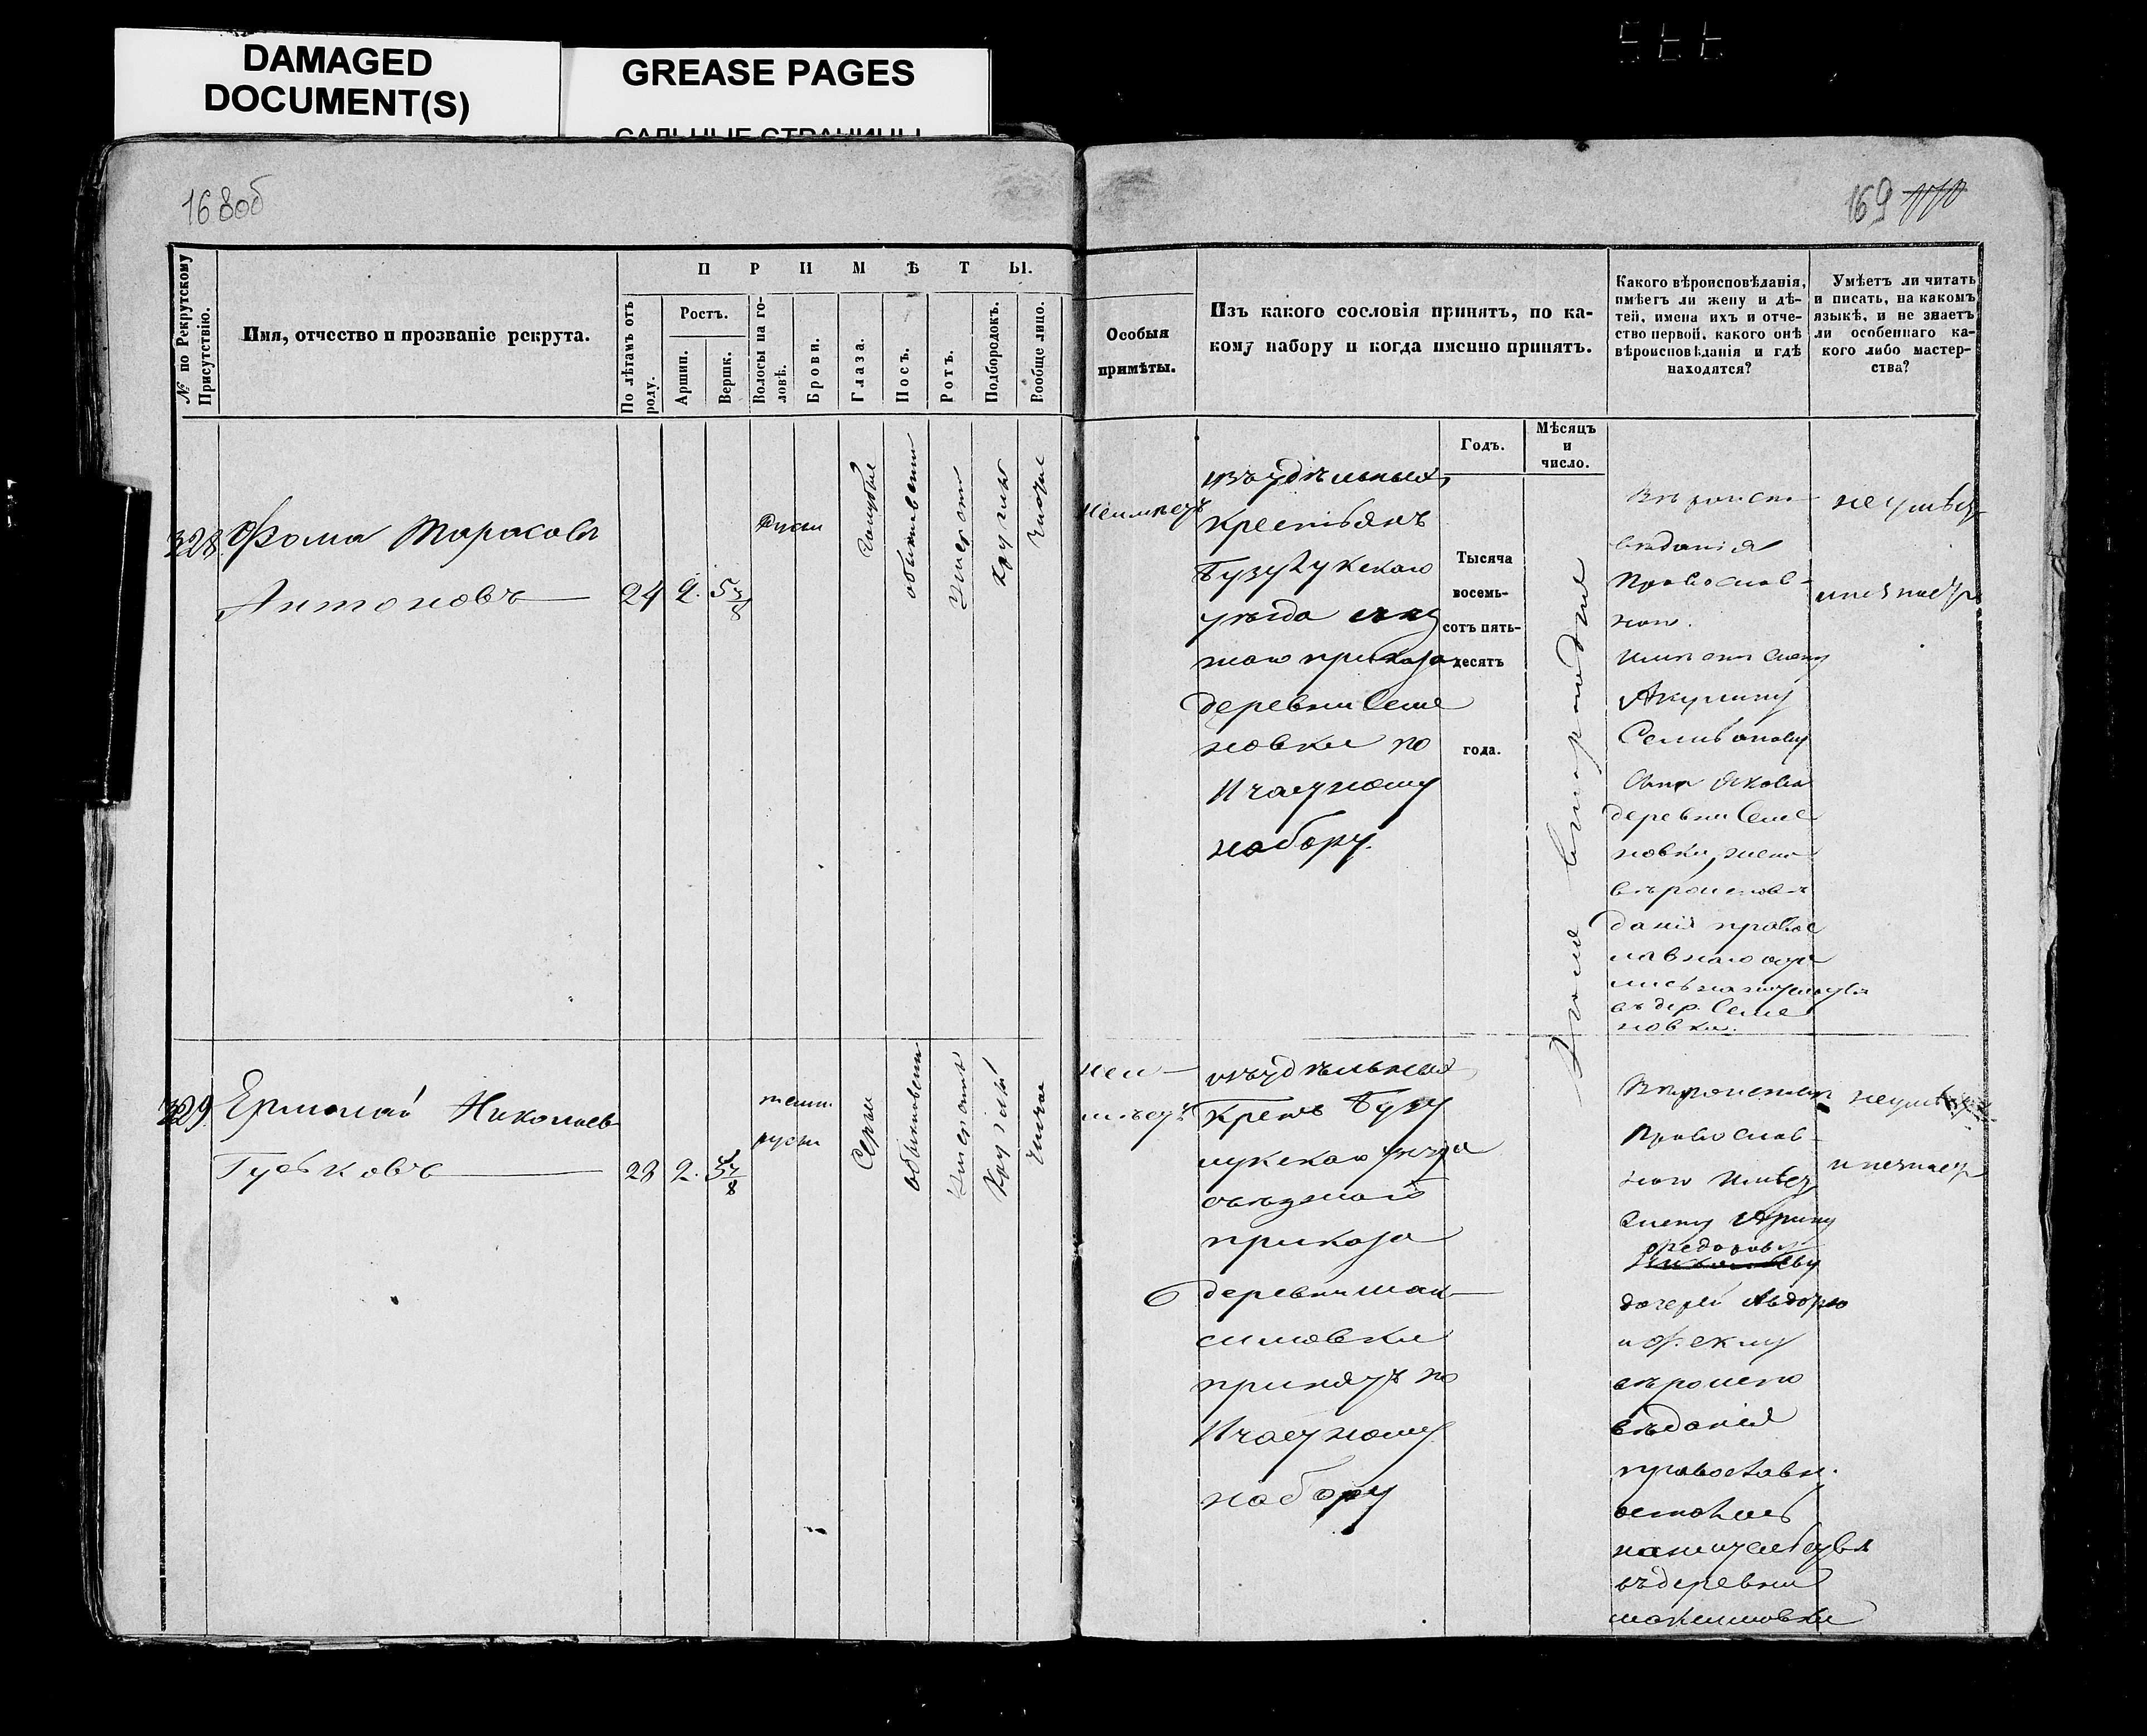 DAMAGED
DOCUMENT(S)
GREASE PAGES
САЛЬНЫЕ СТРАНИЦЫ
168об
169
№ по Рекрутскому
Присутствію.
Имя, отчество и прозваніе рекрута.
ПРИМѢТЫ.
По лѣтамъ отъ
роду.
Ростъ.
Аршин.
Вершк.
Волосы на го-
ловѣ.
Брови.
Глаза.
Носъ.
Ротъ.
Подбородокъ.
Вообще лицо.
Особыя
примѣты.
Изъ какого сословія принятъ, по ка-
кому набору и когда имянно принятъ.
Годъ.
Мѣсяцъ
и
число.
Какого вѣроисповѣданія,
имѣетъ ли жену и дѣ-
тей, имена ихъ и отче-
ство первой, какого онѣ
вѣроисповѣданія и гдѣ
находятся?
Умѣетъ ли читать
и писать, на какомъ
языкѣ, и не знаетъ
ли особеннаго ка-
кого либо мастер-
ства?
328
Фома Тарасовъ
Антоновъ
24
2.
5 7/8
Русы
голубые
обыкновенн
умеронн
круглый
чистое
неимѣетъ
изъ удѣльныхъ
крестьянъ
Бузулукскаго
уѣзда
наго приказа
деревни Семе
новки по
набору.
Тысяча
восемь-
сотъ пять-
десятъ
года.
Вѣроиспо
вѣданія
Православ-
наго.
имѣетъ жену
Акулину
Селиванову
сына Якова
деревни Семе
новки, жена
вѣроисповѣ
данія правос
лавнаго
въ дер. Семе
новки.
не умѣетъ
и не знаетъ
329
Ермолай Николаев
Гуськовъ
28
2.
5 7/8
темн.
русы
Серы
обыкновенн
умеронн
круглый
чистое
неи-
мѣетъ
изъ удѣльныхъ
Крест Бузу
лукскаго уѣзда
приказа
деревни Мак-
симовки
принятъ по
набору
Вѣроисповѣд
Православ-
наго имѣетъ
жену Арину
Федорову
дочерей Авдотью
и Феклу
вѣроиспо
вѣданія
православн.
остались
въ деревни
Максимовки
неумѣетъ
и незнаетъ